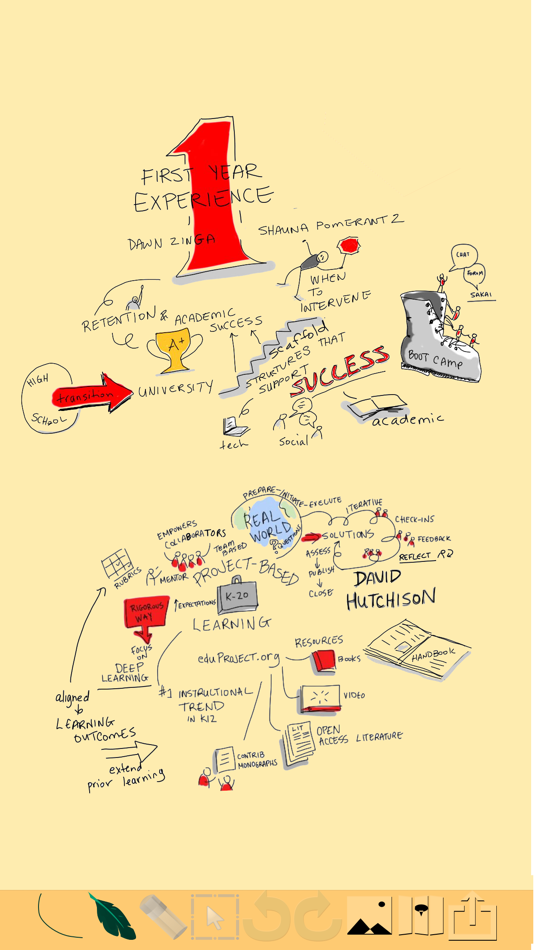 FIRST YEAR
EXPERIENCE
DAWN ZINGA
SHAUNA POMERANTZ
WHEN
TO
INTERVENE
RETENTION &
ACADEMIC
SUCCESS
A+
HIGH
SCHOOL
transition
UNIVERSITY
Scaffold
STRUCTURES THAT
SUPPORT
SUCCESS
tech
social
academic
CHAT
FORUM
SAKAI
BOOT CAMP
PREPARE-INITIATE-EXECUTE
REAL
WORLD
QUESTIONS
ITERATIVE
CHECK-INS
FEEDBACK
REFLECT
SOLUTIONS
ASSESS
PUBLISH
CLOSE
EMPOWERS
COLLABORATORS
TEAM
BASED
RUBRICS
MENTOR
PROJECT-BASED
K-20
LEARNING
DAVID
HUTCHISON
RIGOROUS
WAY
EXPECTATIONS
FOCUS
ON
DEEP
LEARNING
eduPROJECT.org
RESOURCES
BOOKS
HANDBOOK
VIDEO
LIT
OPEN
ACCESS LITERATURE
CONTRIB
MONOGRAPHS
#1 INSTRUCTIONAL
TREND
IN K12
aligned
LEARNING
OUTCOMES
extend
prior learning